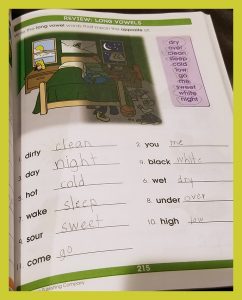 REVIEW: LONG VOWELS
the long vowel words that mean the opposite of:
dry
over
clean
sleep
cold
low
go
me
sweet
white
night
dirty clean
2. you me
day night
4. black white
hot cold
6. wet dry
wake sleep
8. under over
sour sweet
10. high low
come go
215
Publishing Company